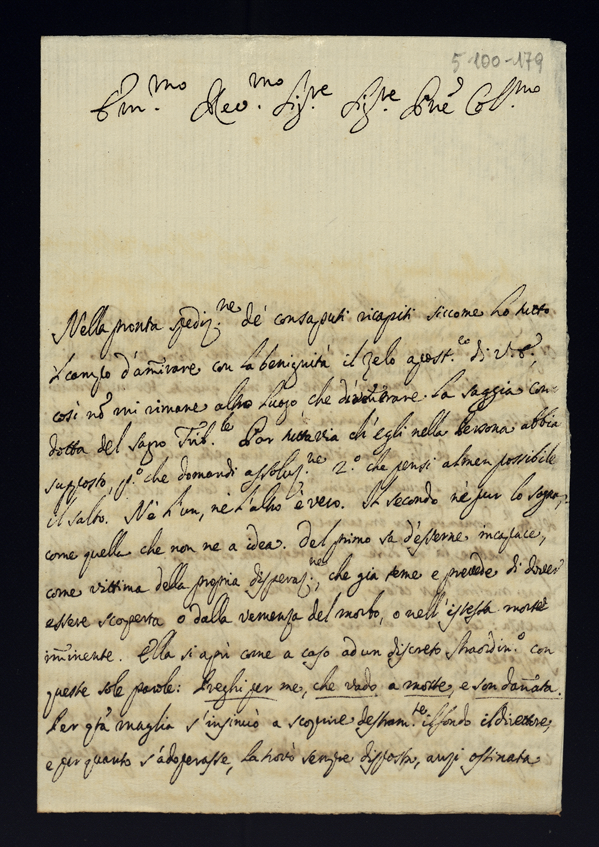 5-100-179
Em.mo Rev.mo Sig.re Sig.re Pne Col.mo
Nella pronta spediz.ne de' consaputi ricapiti siccome ho tutto
il campo d'amirare con la benignità il zelo apost.co di V.E.
così nõ mi rimane altro luogo che di venerare la saggia con
dotta del sagro Trib.le Par tuttavia ch'egli nella Persona abbia
supposto, p.o che domandi assoluz.ne 2.o che pensi almen possibile
il salto. Nè l'un, nè l'altro è vero. Il secondo nè pur lo sogna,
come quella che non ne a idea. Del primo sa d'esserne incapace,
come vittima della propria disperaz.ne, che già teme e prevede di dover
essere scoperta o dalla vemenza del morbo, o nell'istessa morte
iminente. Ella si aprì come a caso ad un discreto straordin.o con
queste sole parole: Preghi per me, che vado a morte, e son dañata.
Per qta maglia s'insinuò a scoprire destram.te il fondo il direttore,
e per quanto s'adoperasse, la trovò sempre disposta, anzi ostinata